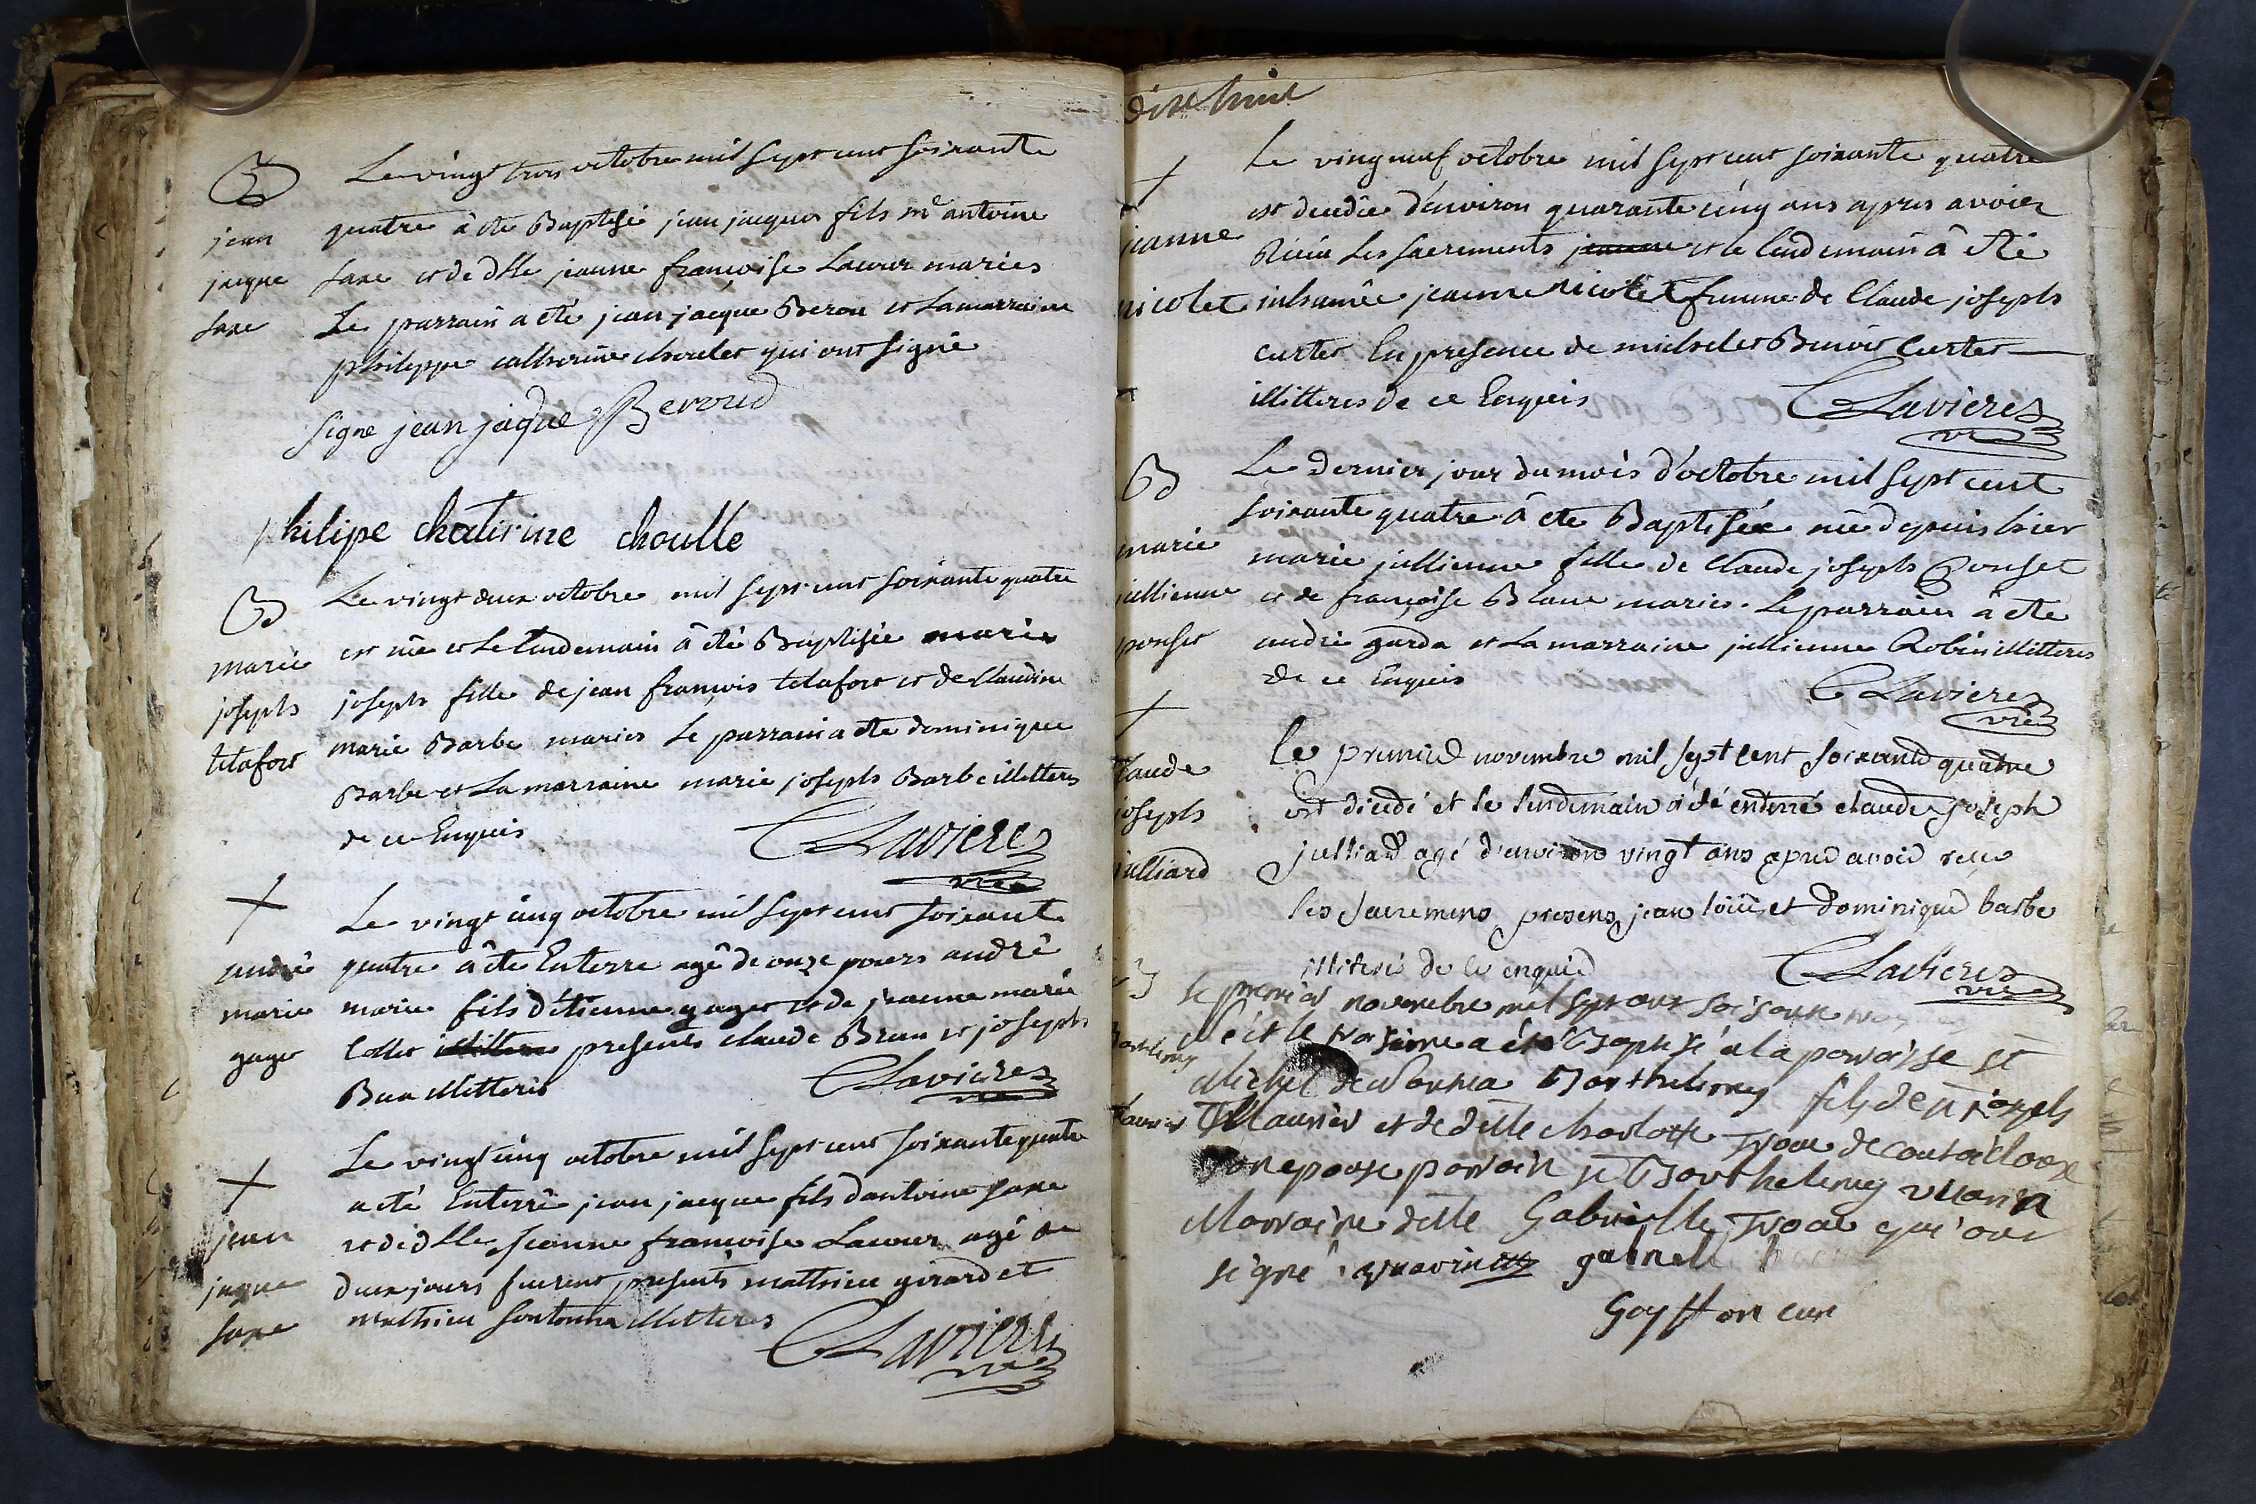 B
jean
jacque
saxe
Le vingt trois octobre mil sept cent soixante
quatre à été Baptisé jean jacques fils mr antoine
saxe et de dlle jeanne françoise Lacour mariés
Le parrain a été jean jacque Beron et La marraine
philippe catherine choulet qui ont signé
signe jean jaque Beroud
philipe chatirine choulle
B
marie
joseph
tetafort
Le vingt deux octobre mil sept cent soixante quatre
est née et Le lendemain à été Baptisée marie
joseph fille de jean françois tetafort et de Claudine
marie Barbe mariés Le parrain a été dominique
Barbe et La marraine marie joseph Barbe illitteres
de ce Enquis
CLavieres
vic
andré
marie
gaget
Le vingt cinq octobre mil sept cent soixante
quatre à été Enterre agé de onze jours andré
marie fils d'étienne gaget et de jeanne marie
Collet presents claude Brun et joseph
Brun illitteres
CLavieres
vic
jean
jaque
saxe
Le vingt cinq octobre mil sept cent soixante quatre
a été Enterré jean jacque fils d'antoine saxe
et de dlle jeanne françoise Lacour agé de
deux jours furent presents mathieu girard et
mathieu fontona illitteres
CLavieres
vic
dix huit
jeanne
nicolet
Le vingneuf octobre mil sept cent soixante quatre
est decedée d'environ quarante cinq ans apres avoier
Récüe Les sacrements jeanne et le lendemain à été
inhumée jeanne nicolet femme de Claude joseph
curtet En presence de michel et Benoit Curtet
illitteres de ce Enquis
CLavieres
vic
B
marie
jullienne
ponset
Le dernier jour du mois d'octobre mil sept cent
soixante quatre à été Baptisée née depuis hier
marie jullienne fille de Claude joseph Ponset
et de françoise Blanc mariés. Le parrain à été
andré garda et La marraine jullienne Robin illitteres
de ce Enquis
CLavieres
vic
Claude
joseph
julliard
le premier novembre mil sept cent soixante quatre
est décedé et le lendemain a été enterré claude joseph
julliard agé d'environ vingt ans apres avoir reçu
les sacremens presens jean et dominique barbe
illiteré de ce enquis
CLavieres
vic
B
Barthelemy
le premier novembre mil sept cent soisante
né et le troisieme a été Baptisé a la parroisse st
Michel de Barthelemy fils de sr joseph
et de delle charlotte
son epouse parrain sr Barthelemy
Marraine delle Gabrielle qui ont
signé gabriell
Goyffon curé